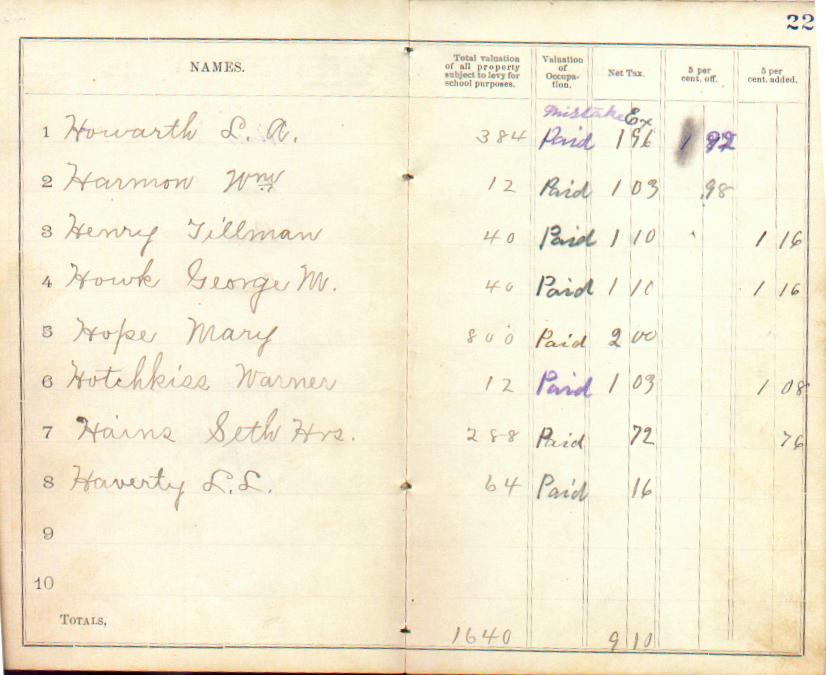 22
NAMES. Total valuation of all property subject to levy for school purposes. Valuation of Occupa-tion. Net Tax. 5 per cent. off. 5 per cent. added.
Mistake Ex
1 Howarth L. A. 384 Paid 1 96 1 92
2 Harmon Wm 12 Paid 1 03 .98
3 Henry Tillman 40 Paid 1 10 1 16
4 Howk George M. 40 Paid 1 10 1 16
5 Hope Mary 800 Paid 2 00
6 Hotchkiss Warner 12 Paid 1 03 1 08
7 Hains Seth Hrs. 288 Paid 72 76
8 Haverty L.L. 64 Paid 16
9
10
TOTALS, 1640 9 10